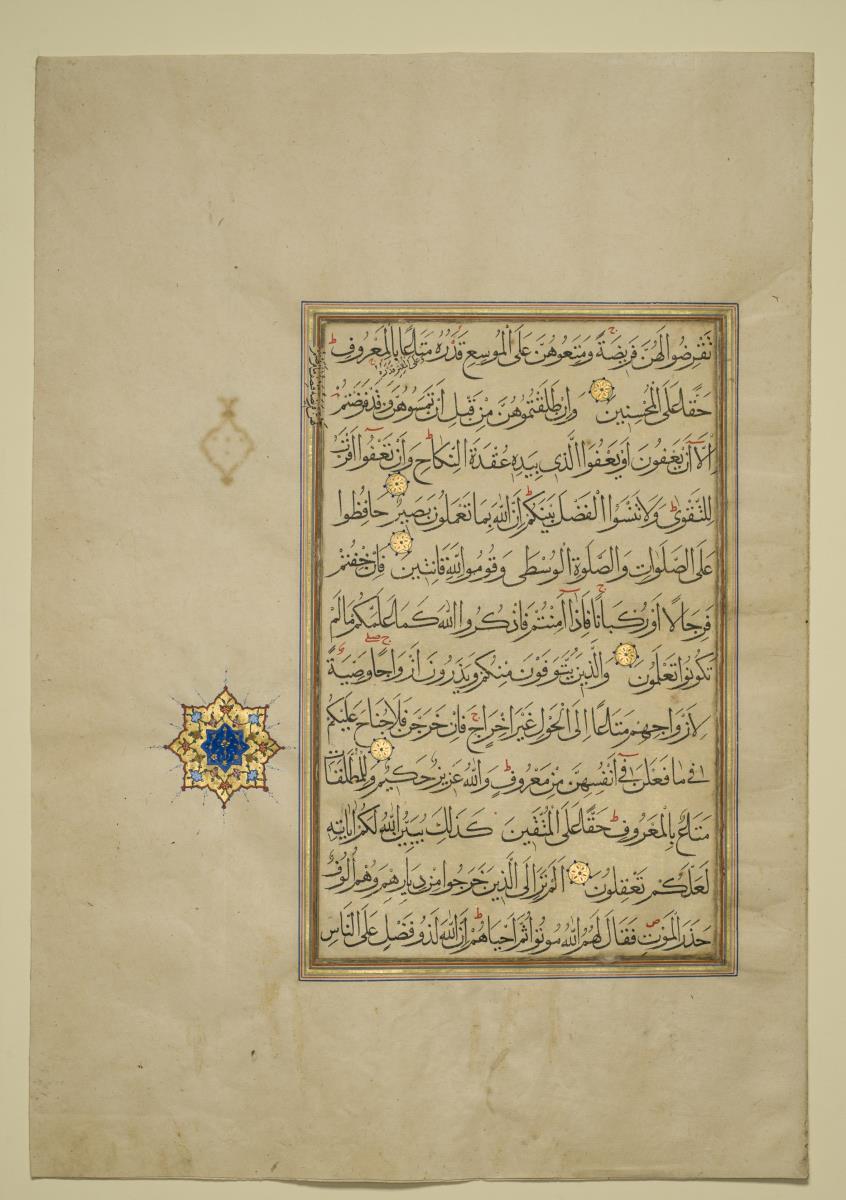 تَفْرِضُوا لَهُنَّ فَرِيضَةً وَمَتِّعُوهُنَّ عَلَى الْمُوسِعِ قَدَرُهُ مَتَاعًا بِالْمَعْرُوفِ
وعلى المقتر قدره
حَقًّا عَلَى الْمُحْسِنِينَ وَإِنْ طَلَّقْتُمُوهُنَّ مِنْ قَبْلِ أَنْ تَمَسُّوهُنَّ وَقَدْ فَرَضْتُمْ
لهن فريضة فنصف ما فرضتم
إِلَّا أَنْ يَعْفُونَ أَوْ يَعْفُوَا الَّذِي بِيَدِهِ عُقْدَةُ النِّكَاحِ وَأَنْ تَعْفُوا أَقْرَبُ
لِلتَّقْوَى وَلَا تَنْسَوُا الْفَضْلَ بَيْنَكُمْ إِنَّ اللَّهَ بِمَا تَعْمَلُونَ بَصِيرٌ حَافِظُوا
عَلَى الصَّلَوَاتِ وَالصَّلَوةِ الْوُسْطَى وَقُومُوا لِلَّهِ قَانِتِينَ فَإِنْ خِفْتُمْ
فَرِجَالًا أَوْ رُكْبَانًا فَإِذَا أَمِنْتُمْ فَاذْكُرُوا اللَّهَ كَمَا عَلَّمَكُمْ مَا لَمْ
تَكُونُوا تَعْلَمُونَ وَالَّذِينَ يُتَوَفَّوْنَ مِنْكُمْ وَيَذَرُونَ أَزْوَاجًا وَصِيَّةً
لِأَزْوَاجِهِمْ مَتَاعًا إِلَى الْحَوْلِ غَيْرَ إِخْرَاجٍ فَإِنْ خَرَجْنَ فَلَا جُنَاحَ عَلَيْكُمْ
فِي مَا فَعَلْنَ فِي أَنْفُسِهِنَّ مِنْ مَعْرُوفٍ وَاللَّهُ عَزِيزٌ حَكِيمٌ وَلِلْمُطَلَّقَاتِ
مَتَاعٌ بِالْمَعْرُوفِ حَقًّا عَلَى الْمُتَّقِينَ كَذَلِكَ يُبَيِّنُ اللَّهُ لَكُمْ آيَاتِهِ
لَعَلَّكُمْ تَعْقِلُونَ أَلَمْ تَرَ إِلَى الَّذِينَ خَرَجُوا مِنْ دِيَارِهِمْ وَهُمْ أُلُوفٌ
حَذَرَ الْمَوْتِ فَقَالَ لَهُمُ اللَّهُ مُوتُوا ثُمَّ أَحْيَاهُمْ إِنَّ اللَّهَ لَذُو فَضْلٍ عَلَى النَّاسِ